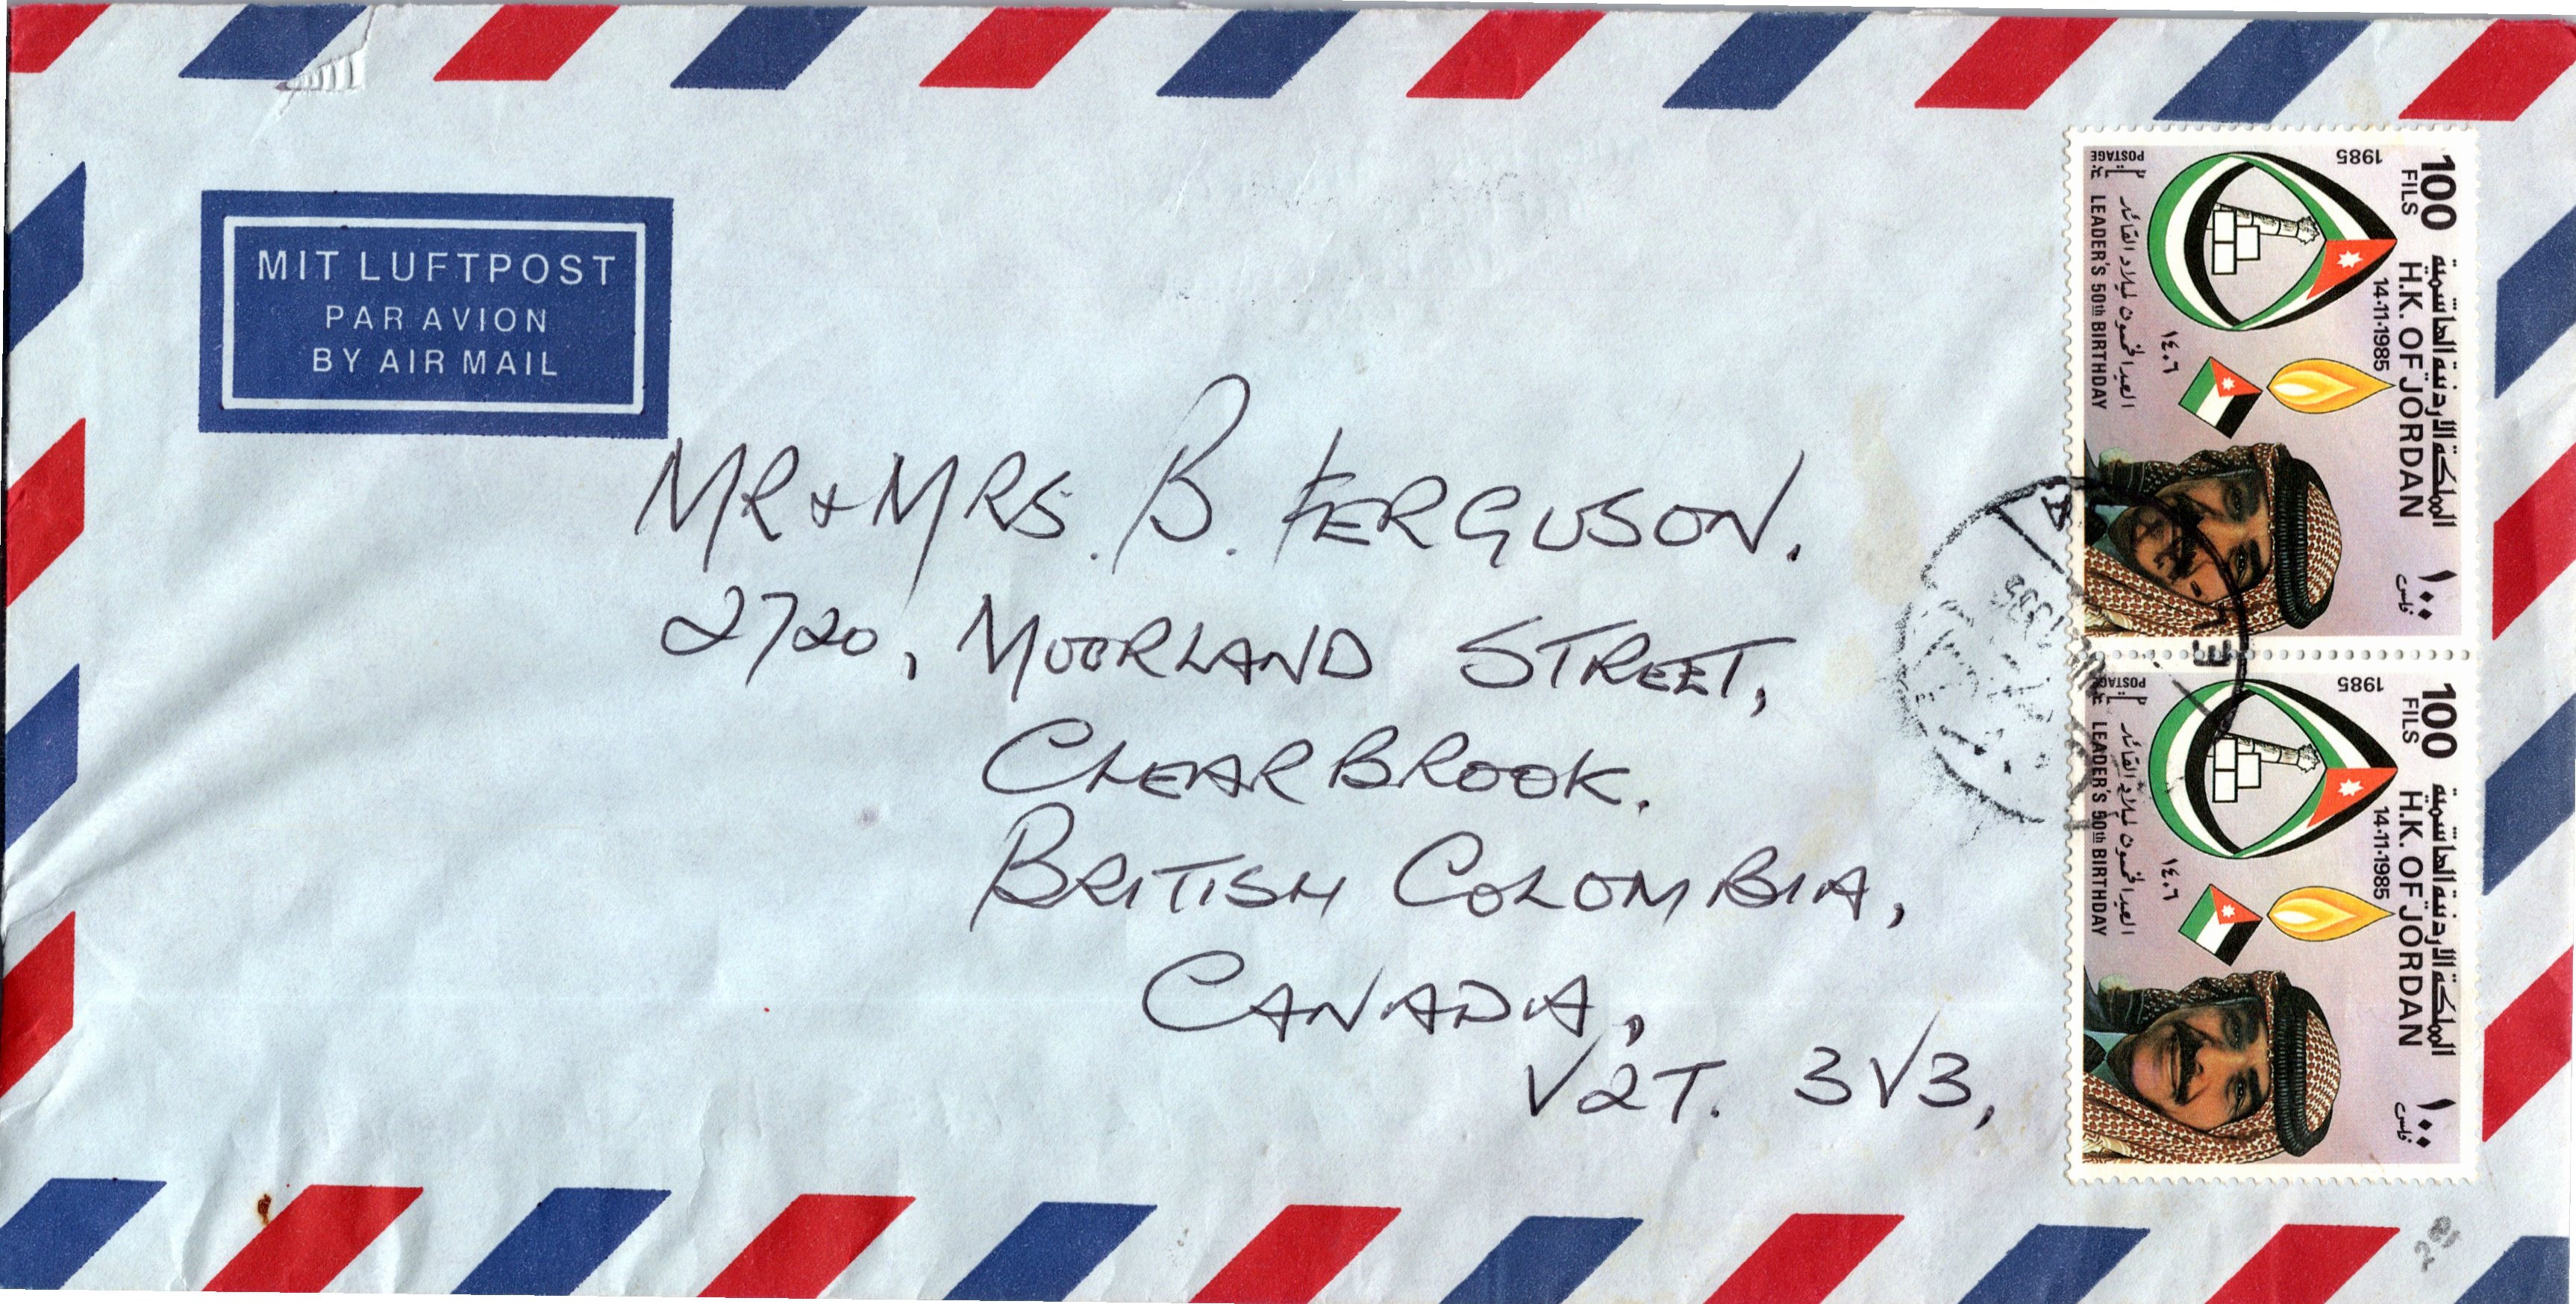 MIT LUFTPOST
PAR AVION
BY AIR MAIL
MR & MRS. B. FERGUSON.
2720, MOORLAND STREET,
CLEARBROOK.
BRITISH COLOMBIA,
CANADA,
V2T. 3V3,
المملكة الاردنية الهاشمية ١٠٠ فلس
100 FILS H.K. OF JORDAN
14-11-1985
1985
١٤٠٦
POSTAGE بريد
العيد الخمسون لميلاد القائد
LEADER'S 50th BIRTHDAY
المملكة الاردنية الهاشمية ١٠٠ فلس
100 FILS H.K. OF JORDAN
14-11-1985
1985
١٤٠٦
POSTAGE
العيد الخمسون لميلاد القائد
LEADER'S 50th BIRTHDAY